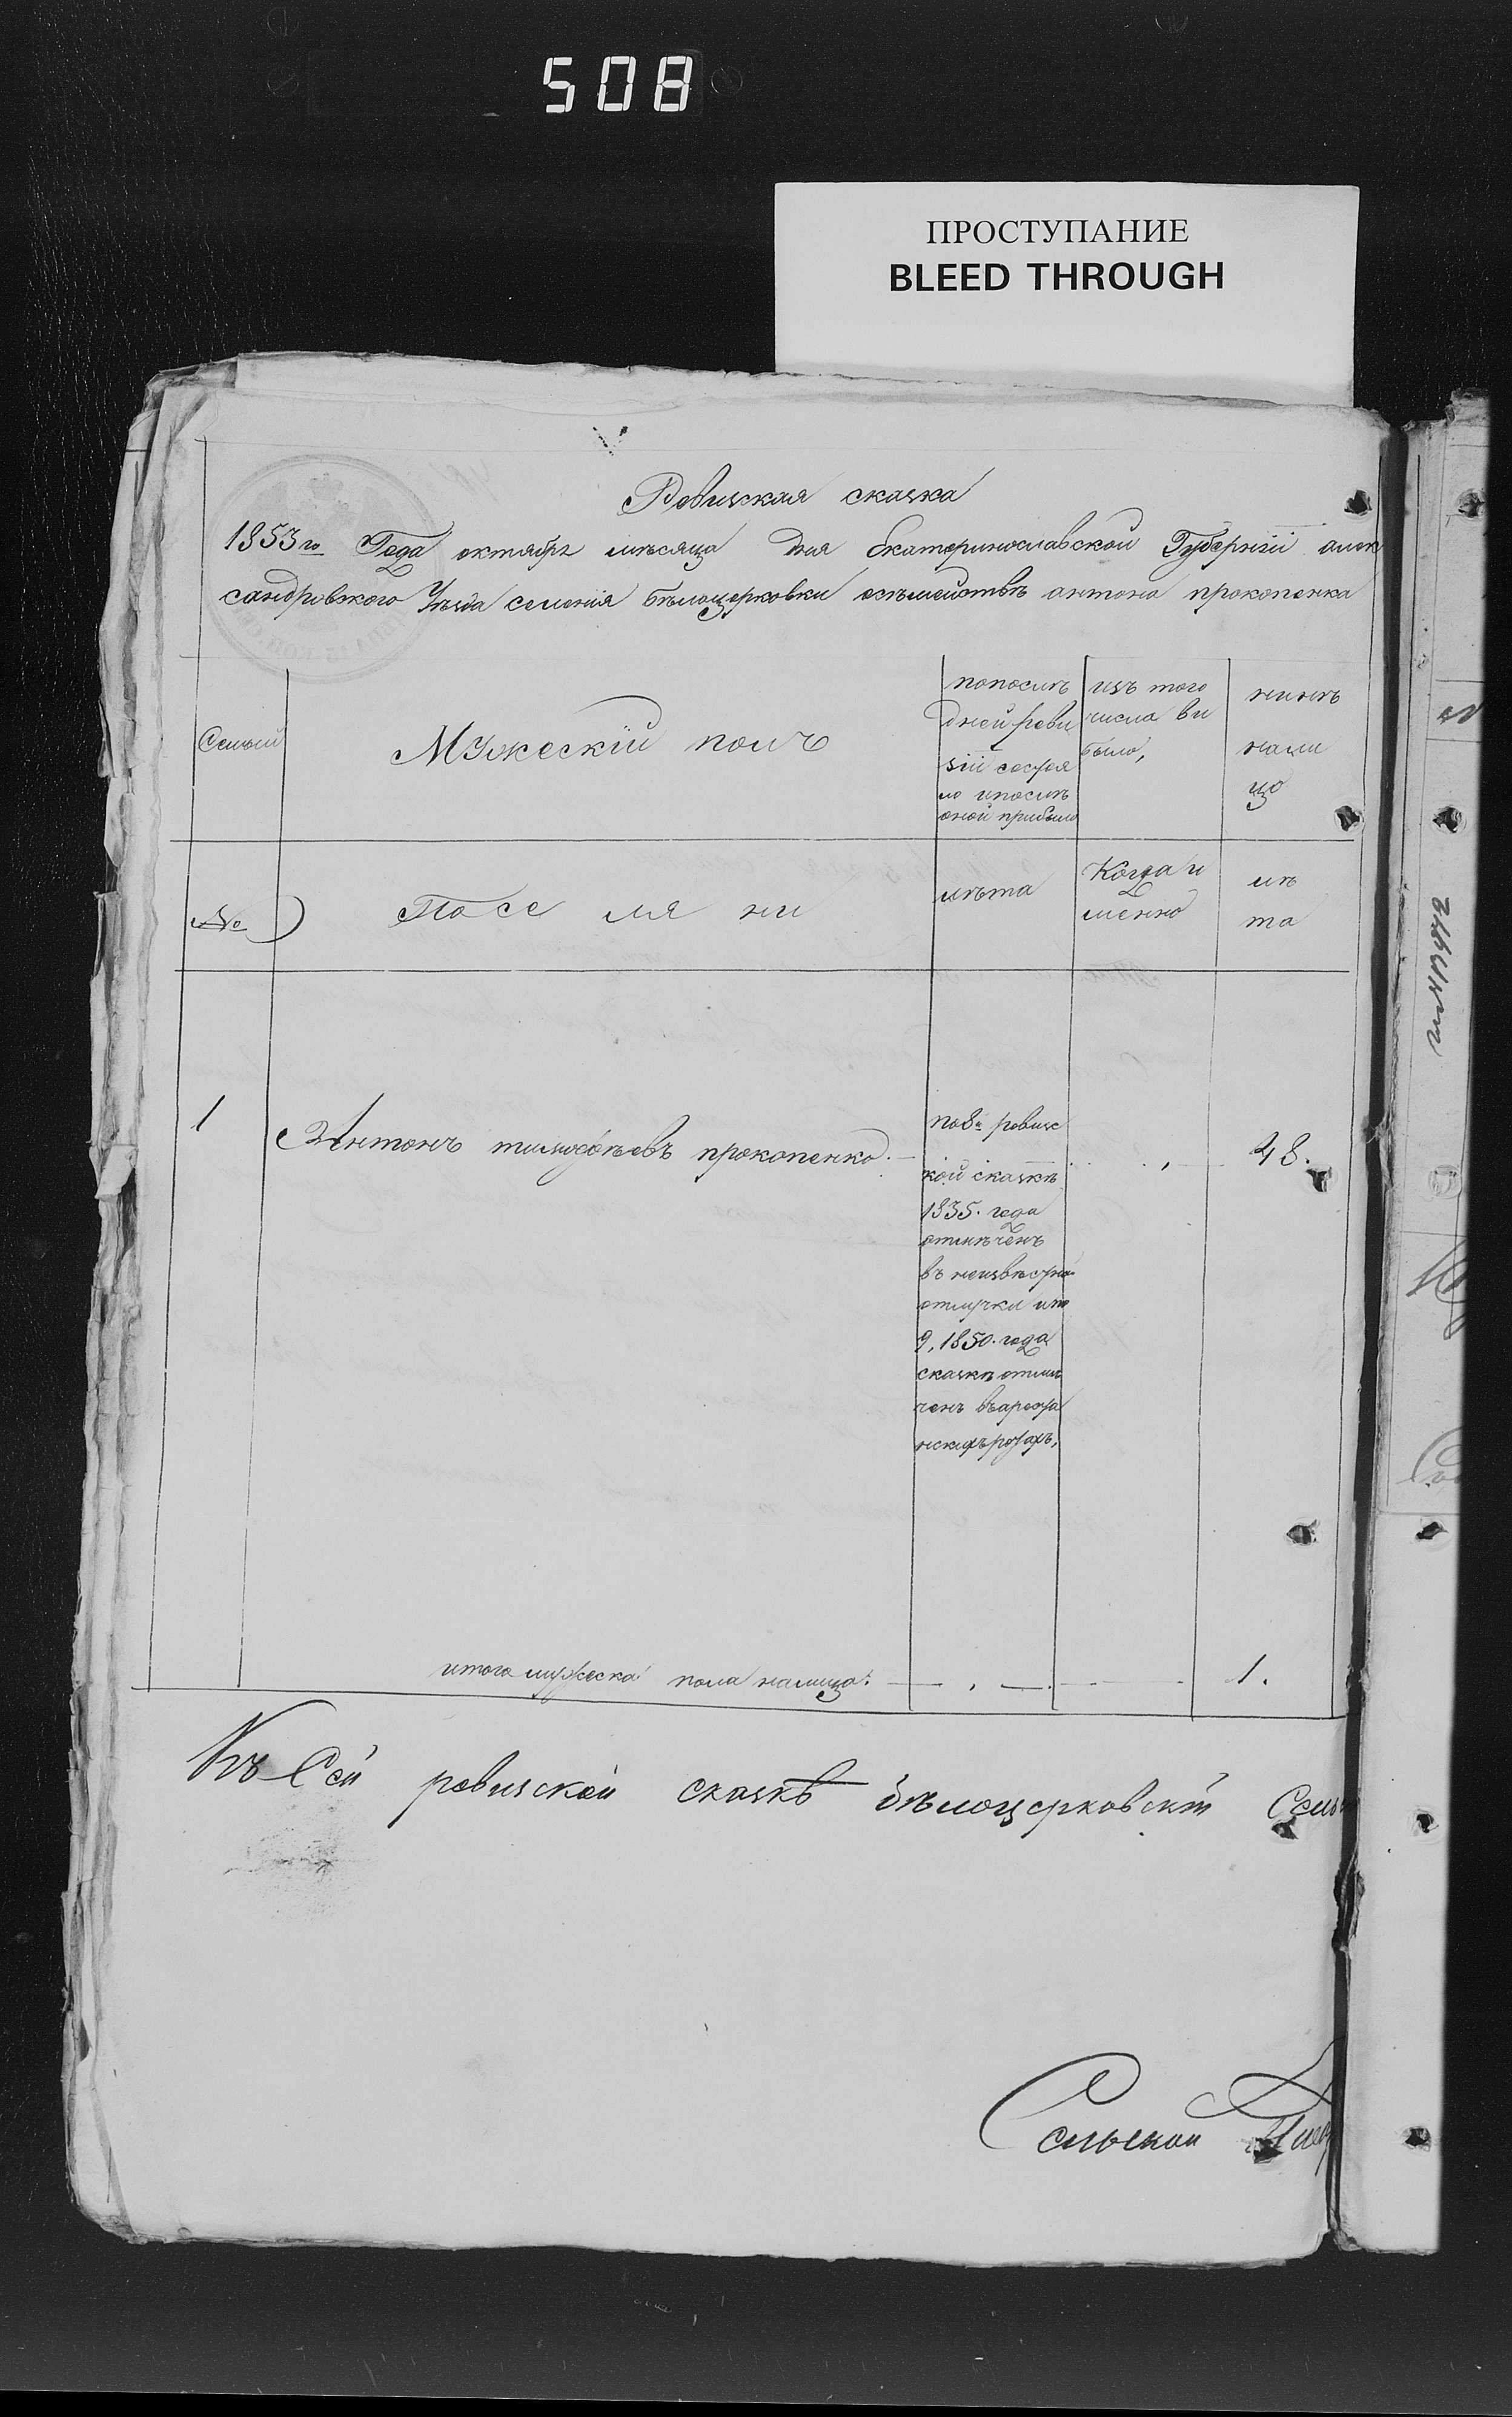 508
ПРОСТУПАНИЕ
BLEED THROUGH
Ревизская сказка
1853го Года октября мѣсяца дня Екатеринославской Губерніи алек
сандровского Уѣзда селенія бѣлоцерковки антона прокопенка
Семьи
Мужескій полъ
попослѣ
дней реви
зіи состоя
ло ипослѣ
оной прибыло
изъ того
числа ви
было,
нинѣ
нали
цо
№
Посе ля ни
лѣта
Когда и
менно
лѣ
та
1
Антонъ тимофѣевъ прокопенко.
48.
по8й ревизс
кой сказкѣ
1835. года
отмѣченъ
въ неизвѣстной
отлучки ипо
9, 1850. года
сказкѣ отмѣ
ченъ
итого мужеска пола налицо.
1.
Къ Сей ревизской сказкѣ бѣлоцерковскій Сель
Сельской